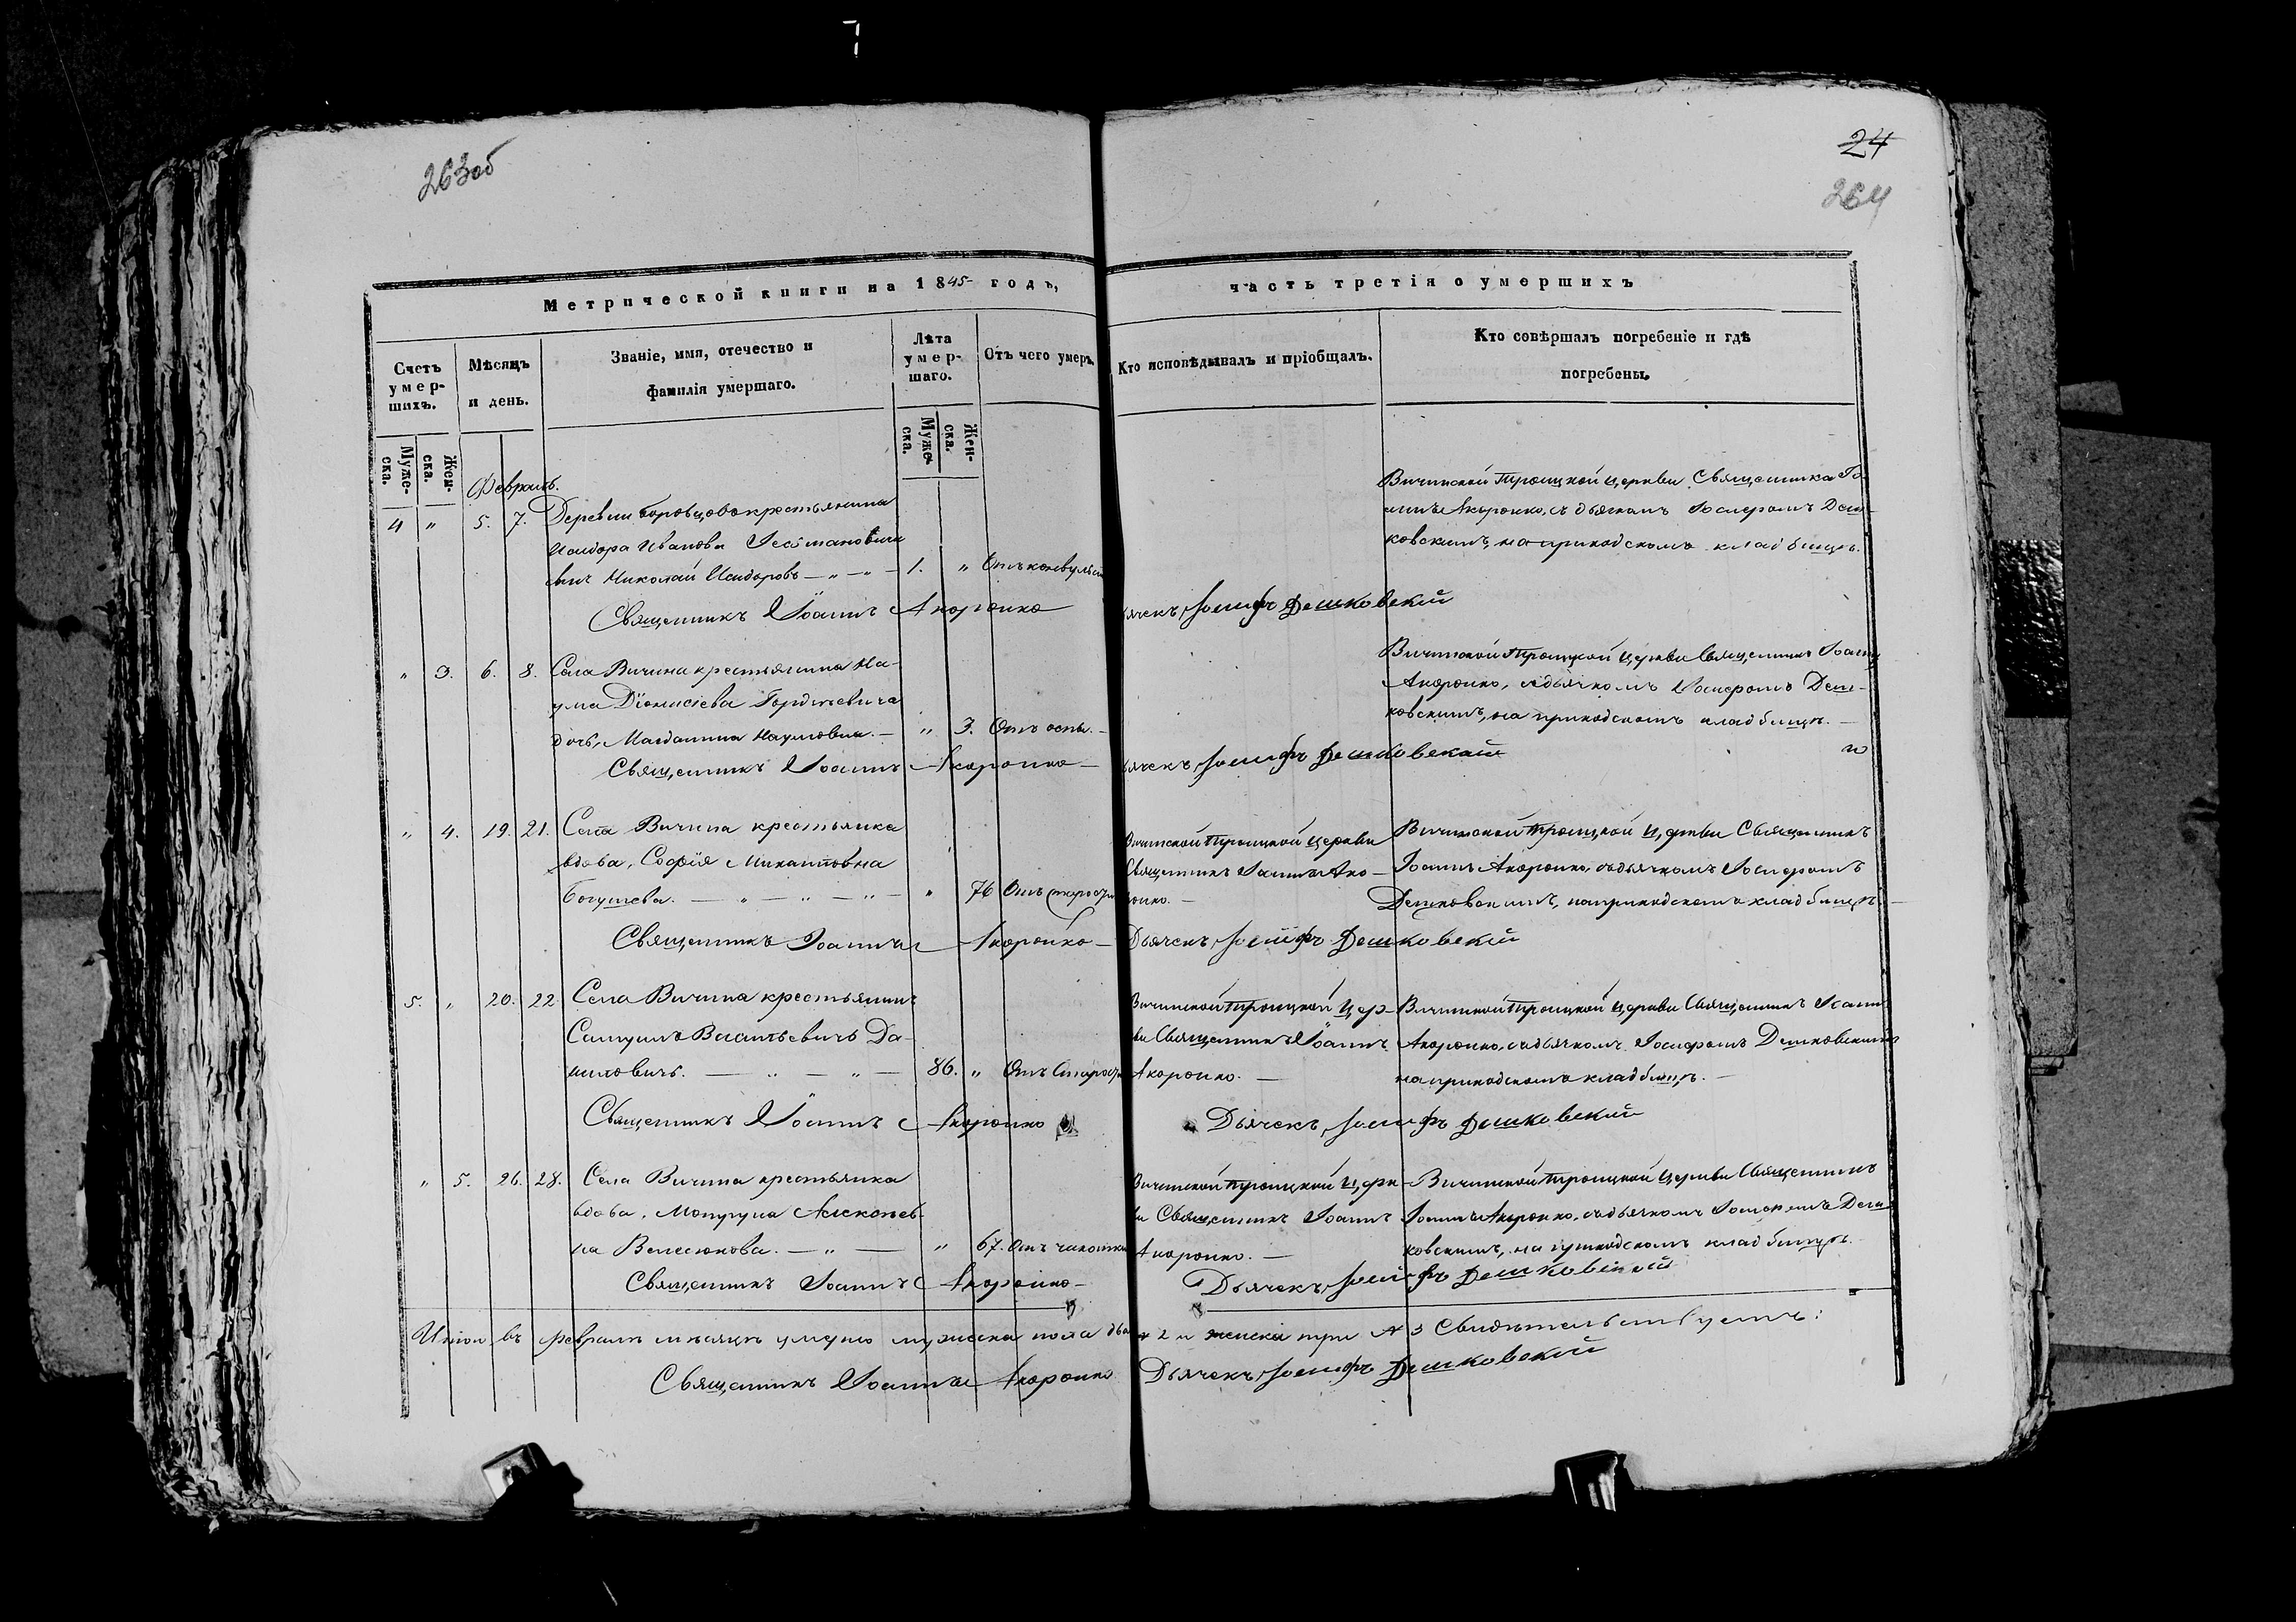 263об
24
264
Метрической книги на 1845 годъ,
часть третія о умершихъ
Счетъ умер-шихъ.
Мѣсяцъ и день.
Званіе, имя, отечество и фамилія умершаго.
Лѣта умер-шаго.
Отъ чего умеръ
Кто исповѣдывалъ и пріобщалъ.
Кто совѣршалъ погребеніе и гдѣ погребены.
Муже-ска.
Жен-ска.
Муже-ска.
Жен-ска.
Февраль.
4 " 5. 7. Деревни Боровцово крестьянина
Исидора Иванова
Николай Исидоровъ — " — " — 1. " Отъ конвульсіи
Вичинской Троицкой церкви Священника Іо-
аннъ Акоронко, съ дьякомъ Іосифомъ Деш-
ковскимъ, на приходскомъ кладбищѣ.
Священникъ Іоаннъ Акоронко
Дьячекъ Іосифъ Дешковскій
" 3. 6. 8. Села Вичина крестьянина На-
ума Діонисіева Гордіевича
дочь, Магдалина Наумовна. — " 3. Отъ оспы. —
Вичинской Троицкой церкви Священникъ Іоаннъ
Акоронко, съ дьячкомъ Іосифомъ Деш-
ковскимъ, на приходскомъ кладбищѣ. —
Священникъ Іоаннъ Акоронко —
Дьячекъ Іосифъ Дешковскій
" 4. 19. 21. Села Вичина крестьянка
вдова, София Михайловна
Богушева. — " — " — " — " 76 Отъ старости
Вичинской Троицкой церкви
Священникъ Іоаннъ Ако-
ронко. —
Вичинской Троицкой церкви Священникъ
Іоаннъ Акоронко, съ дьячкомъ Іосифомъ
Дешковскимъ, на приходскомъ кладбищѣ. —
Священникъ Іоаннъ Акоронко —
Дьячекъ Іосифъ Дешковскій
5. " 20. 22. Села Вичина крестьянинъ
Самуилъ Данич-
иловичъ. — " — " — 86. " Отъ старости
Вичинской Троицкой Цер-
кви Священникъ Іоаннъ
Акоронко. —
Вичинской Троицкой церкви Священникъ Іоаннъ
Акоронко, съ дьячкомъ Іосифомъ Дешковскимъ
на приходскомъ кладбищѣ. —
Священникъ Іоаннъ Акоронко
Дьячекъ Іосифъ Дешковскій
" 5. 26. 28. Села Вичина крестьянка
вдова, Алексѣев-
на Велесюкова. — " — " 67. Отъ чахотки
Вичинской Троицкой Церк-
ви Священникъ Іоаннъ
Акоронко. —
Вичинской Троицкой Церкви Священникъ
Іоаннъ Акоронко, съ дьячкомъ Іосифомъ Деш-
ковскимъ, на приходскомъ кладбищѣ.
Священникъ Іоаннъ Акоронко —
Дьячекъ Іосифъ Дешковскій
Итого въ Февралѣ мѣсяцѣ умерло мужска пола два 2 и женска три № 3 Свидѣтельствуемъ:
Священникъ Іоаннъ Акоронко
Дьячекъ Іосифъ Дешковскій